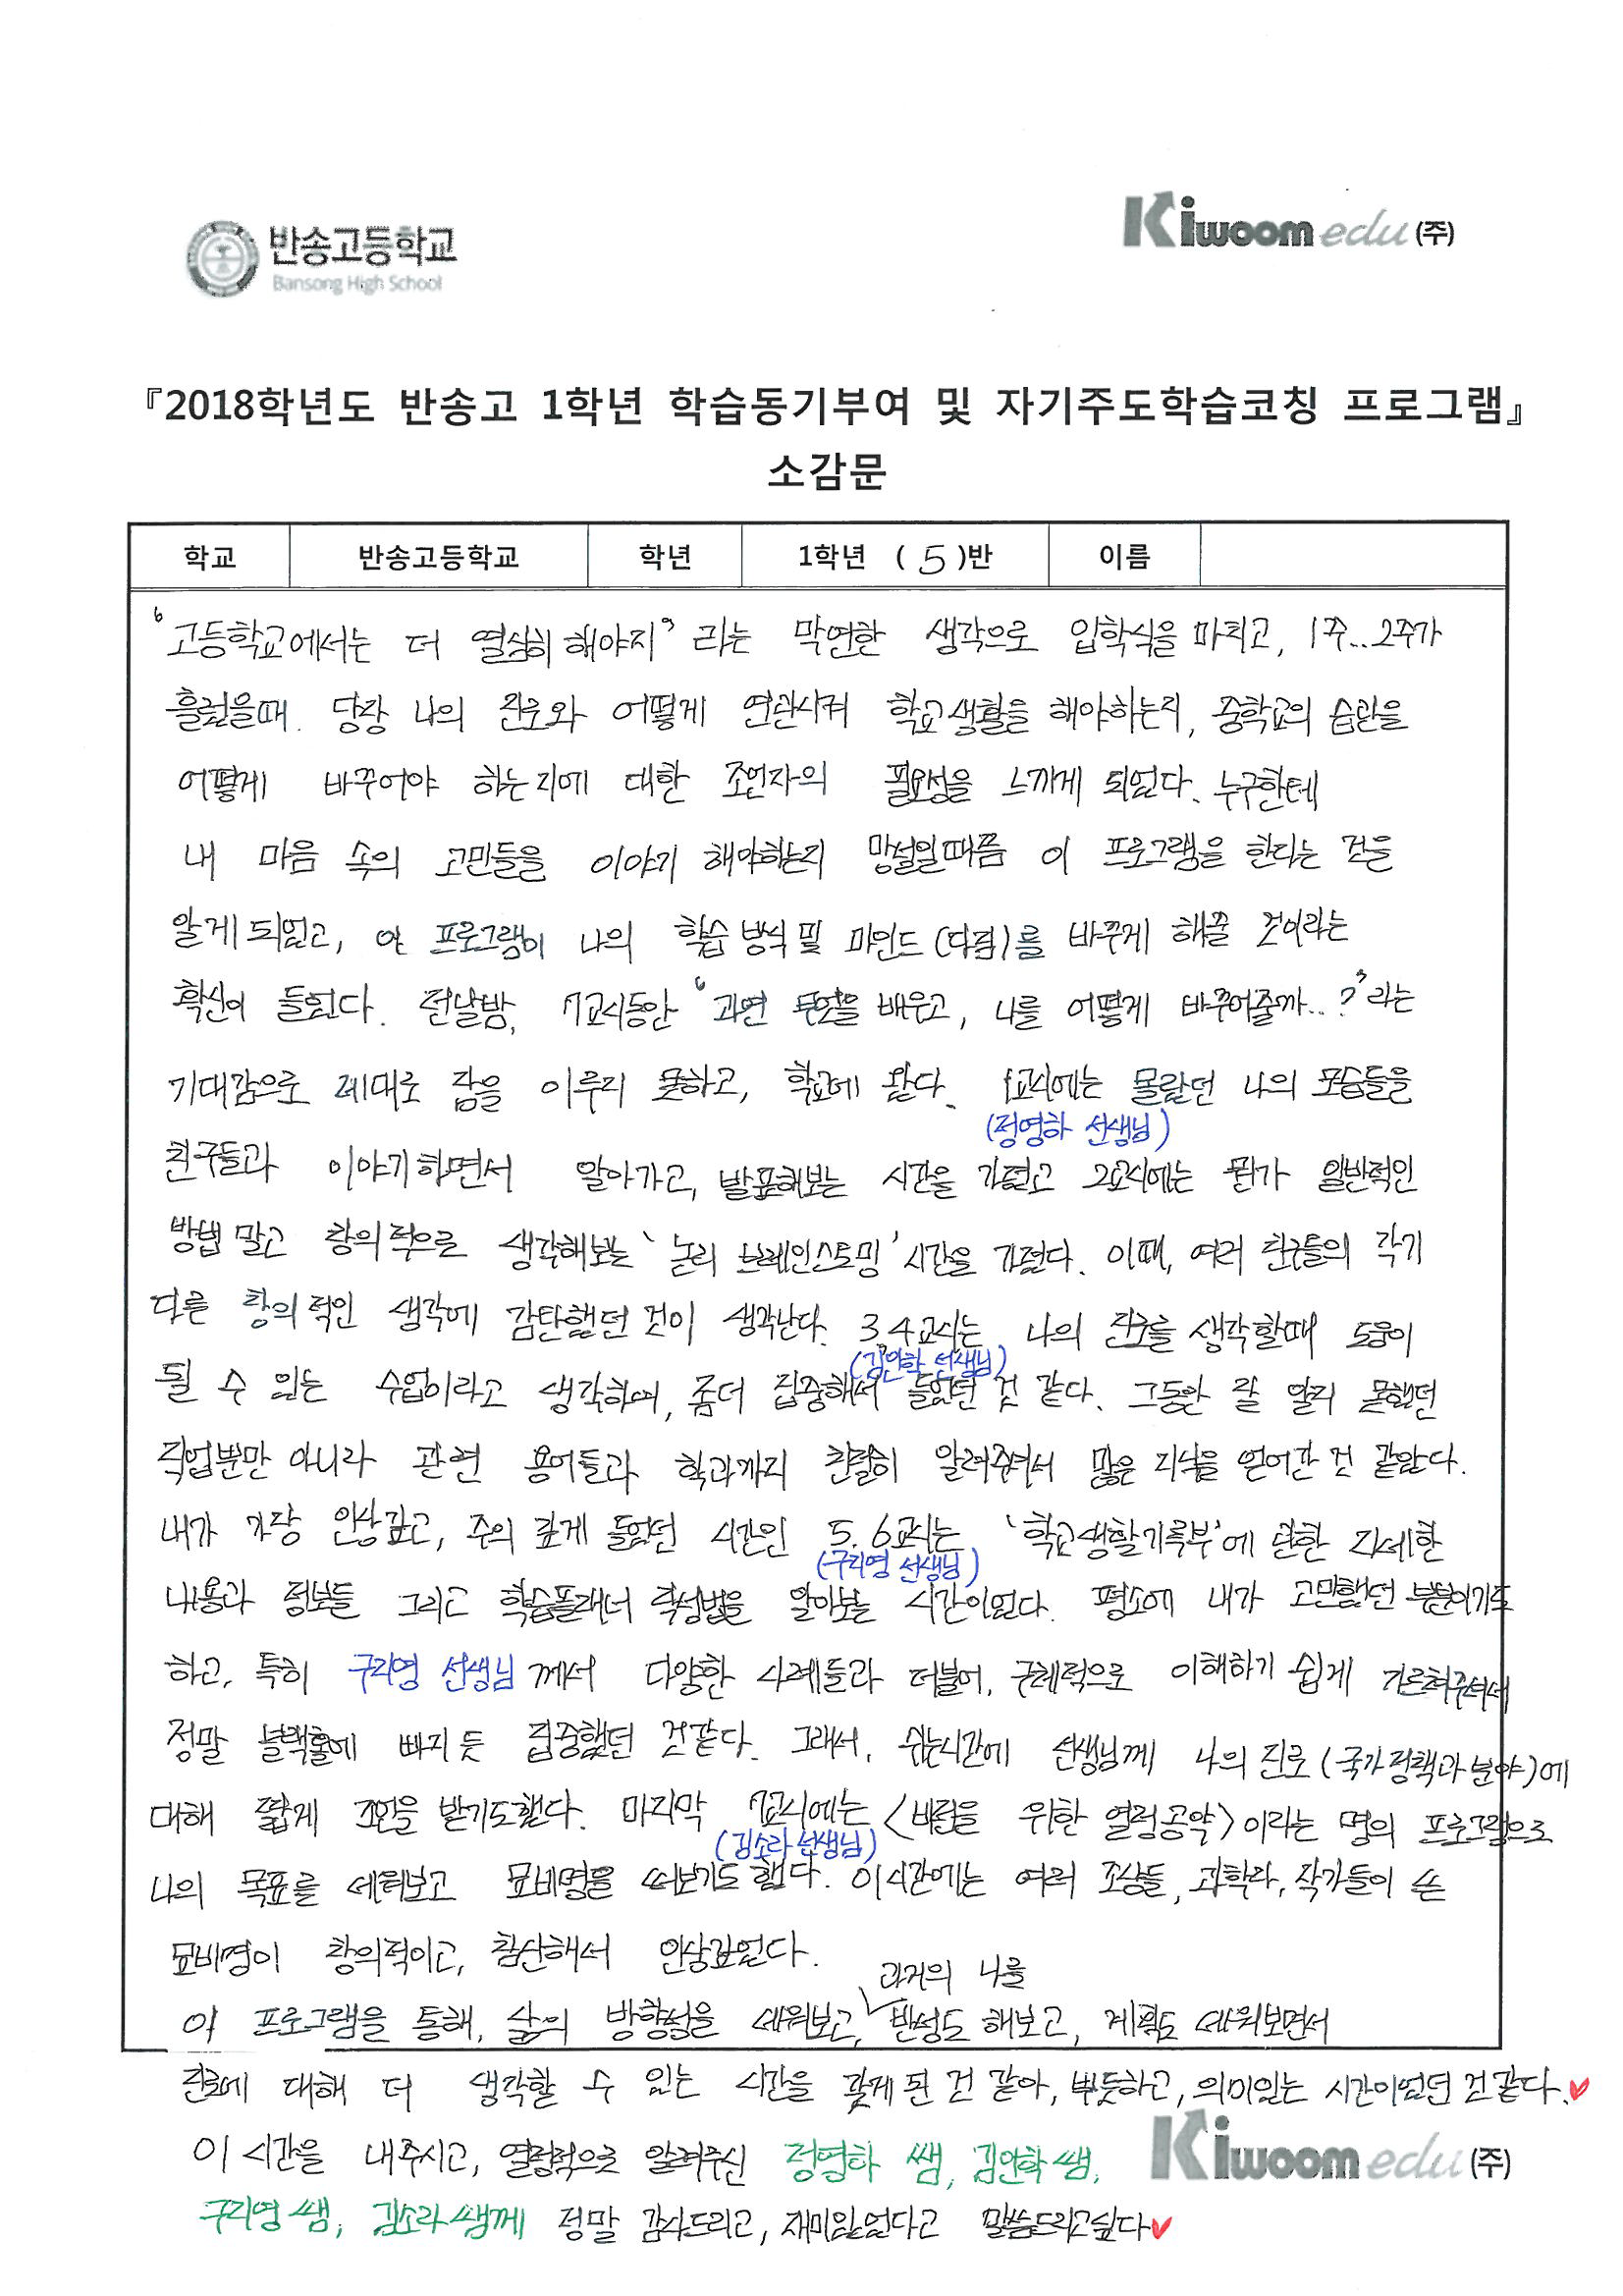 반송고등학교
Bansong High School
Kiwoom edu (주)
『2018학년도 반송고 1학년 학습동기부여 및 자기주도학습코칭 프로그램』
소감문
학교 반송고등학교 학년 1학년 ( 5 )반 이름
‘고등학교에서는 더 열심히 해야지’ 라는 막연한 생각으로 입학식을 마치고, 1주...2주가
흘렀을때. 당장 나의 진로와 어떻게 연관시켜 학교생활을 해야하는지, 중학교의 습관을
어떻게 바꾸어야 하는지에 대한 조언자의 필요성을 느끼게 되었다. 누구한테
내 마음 속의 고민들을 이야기 해야하는지 망설일때쯤 이 프로그램을 한다는 것을
알게되었고, 이 프로그램이 나의 학습 방식 및 마인드(다짐)를 바꾸게 해줄 것이라는
확신이 들었다. 전날밤, 7교시동안 ‘과연 무엇을 배우고, 나를 어떻게 바꾸어줄까...?’라는
기대감으로 제대로 잠을 이루지 못하고, 학교에 왔다. 1교시에는 몰랐던 나의 모습들을
(정영하 선생님)
친구들과 이야기하면서 알아가고, 발표해보는 시간을 가졌고 2교시에는 뭔가 일반적인
방법 말고 창의적으로 생각해보는 ‘논리 브레인스토밍’ 시간을 가졌다. 이때, 여러 친구들의 각기
다른 창의적인 생각에 감탄했던 것이 생각난다. 3,4교시는 나의 진로를 생각할때 도움이
(김안학 선생님)
될 수 있는 수업이라고 생각하여, 좀더 집중해서 들었던 것 같다. 그동안 잘 알지 못했던
직업뿐만 아니라 관련 용어들과 학과까지 친절히 알려주셔서 많은 지식을 얻어간 것 같았다.
내가 가장 인상깊고, 주의 깊게 들었던 시간인 5,6교시는 ‘학교생활기록부’에 관한 자세한
(구리영 선생님)
내용과 정보들 그리고 학습플래너 작성법을 알아보는 시간이었다. 평소에 내가 고민했던 부분이기도
하고, 특히 구리영 선생님께서 다양한 사례들과 더불어, 구체적으로 이해하기 쉽게 가르쳐주셔서
정말 블랙홀에 빠지듯 집중했던 것같다. 그래서, 쉬는시간에 선생님께 나의 진로(국가정책과 분야)에
대해 짧게 조언을 받기도했다. 마지막 7교시에는 <바람을 위한 열정공약>이라는 명의 프로그램으로
(김소라 선생님)
나의 목표를 세워보고 묘비명을 써보기도 했다. 이시간에는 여러 조상들, 과학자, 작가들이 쓴
묘비명이 창의적이고, 참신해서 인상깊었다.
이 프로그램을 통해, 삶의 방향성을 세워보고, 과거의 나를 반성도 해보고, 계획도 세워보면서
진로에 대해 더 생각할 수 있는 시간을 갖게 된 것 같아, 뿌듯하고, 의미있는 시간이었던 것같다.♥
이 시간을 내주시고, 열정적으로 알려주신 정영하 쌤, 김안학 쌤,
Kiwoom edu (주)
구리영 쌤, 김소라 쌤께 정말 감사드리고, 재미있었다고 말씀드리고싶다♥